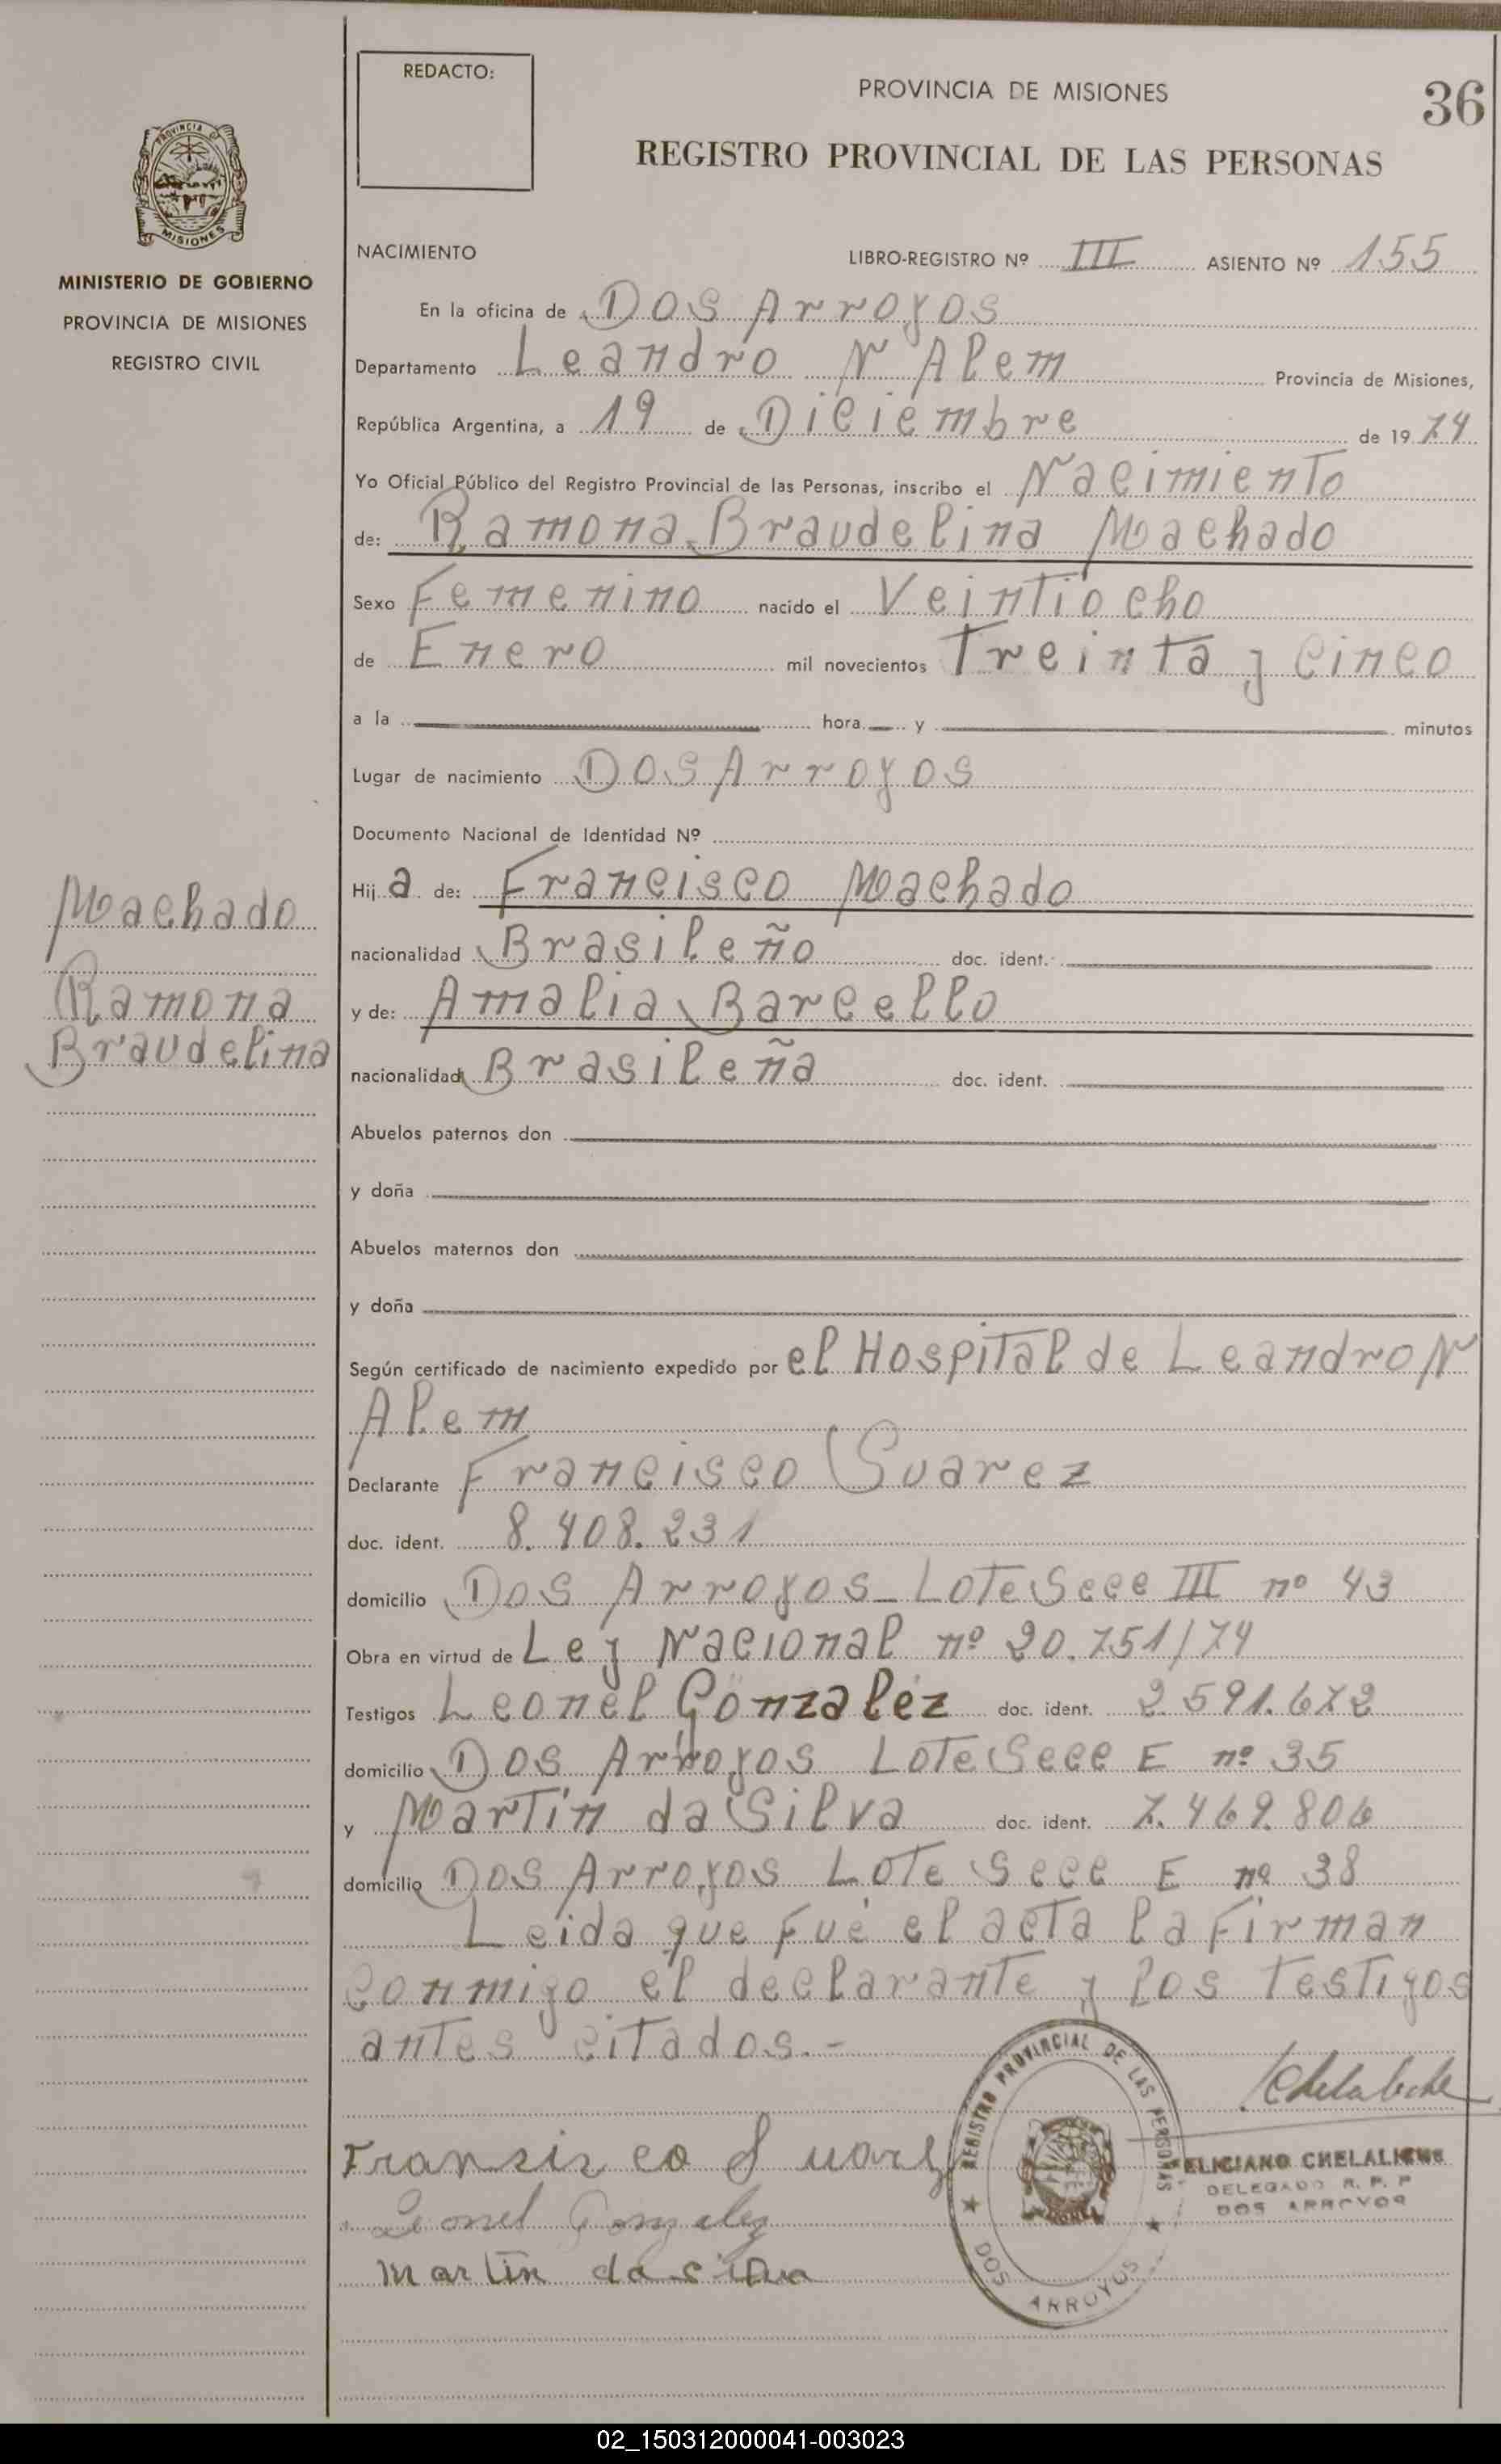 REDACTO:
PROVINCIA DE MISIONES
36
REGISTRO PROVINCIAL DE LAS PERSONAS
PROVINCIA DE
MISIONES
MINISTERIO DE GOBIERNO
PROVINCIA DE MISIONES
REGISTRO CIVIL
NACIMIENTO LIBRO-REGISTRO Nº III ASIENTO Nº 155
En la oficina de Dos Arroyos
Departamento Leandro N Alem Provincia de Misiones,
República Argentina, a 19 de Diciembre de 1974
Yo Oficial Público del Registro Provincial de las Personas, inscribo el Nacimiento
de: Ramona Braudelina Machado
Sexo Femenino nacido el Veintiocho
de Enero mil novecientos Treinta y cinco
a la hora y minutos
Lugar de nacimiento Dos Arroyos
Documento Nacional de Identidad Nº
Hija de: Francisco Machado
nacionalidad Brasileño doc. ident.
y de: Amalia Barcello
nacionalidad Brasileña doc. ident.
Machado
Ramona
Braudelina
Abuelos paternos don
y doña
Abuelos maternos don
y doña
Según certificado de nacimiento expedido por el Hospital de Leandro N
Alem
Declarante Francisco Suarez
doc. ident. 8.408.231
domicilio Dos Arroyos - Lote Secc III nº 43
Obra en virtud de Ley Nacional nº 20.751/74
Testigos Leonel Gonzalez doc. ident. 2.591.672
domicilio Dos Arroyos Lote Secc E nº 35
y Martín da Silva doc. ident. 7.469.806
domicilio Dos Arroyos Lote Secc E nº 38
Leida que fué el acta la firman
conmigo el declarante y los testigos
antes citados.-
REGISTRO PROVINCIAL DE LAS PERSONAS
DOS ARROYOS
Chelaliche
Fransisco Suarez
Leonel Gonzalez
martín da silva
ELICIANO CHELALICHE
DELEGADO R. P. P
DOS ARROYOS
02_150312000041-003023